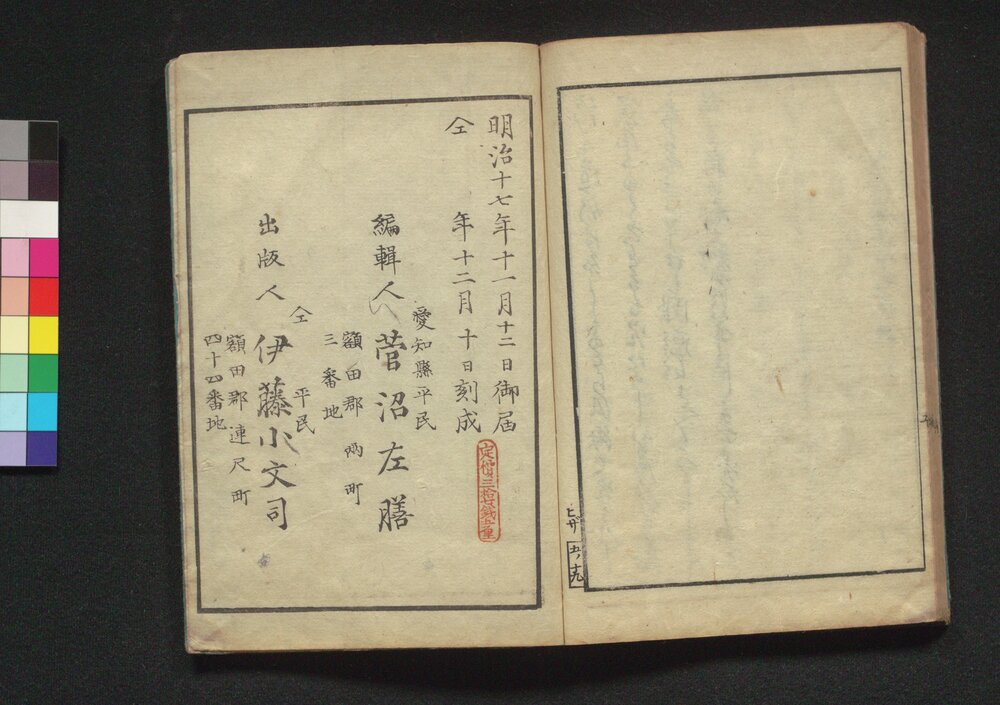 ヒザ
五ノ十九
明治十七年十一月十二日御届
仝年十二月十日刻成
定價三拾七銭五重
愛知縣平民
編輯人菅沼左膳
額田郡両町
三番地
仝平民
出版人伊藤小文司
額田郡連尺町
四十四番地